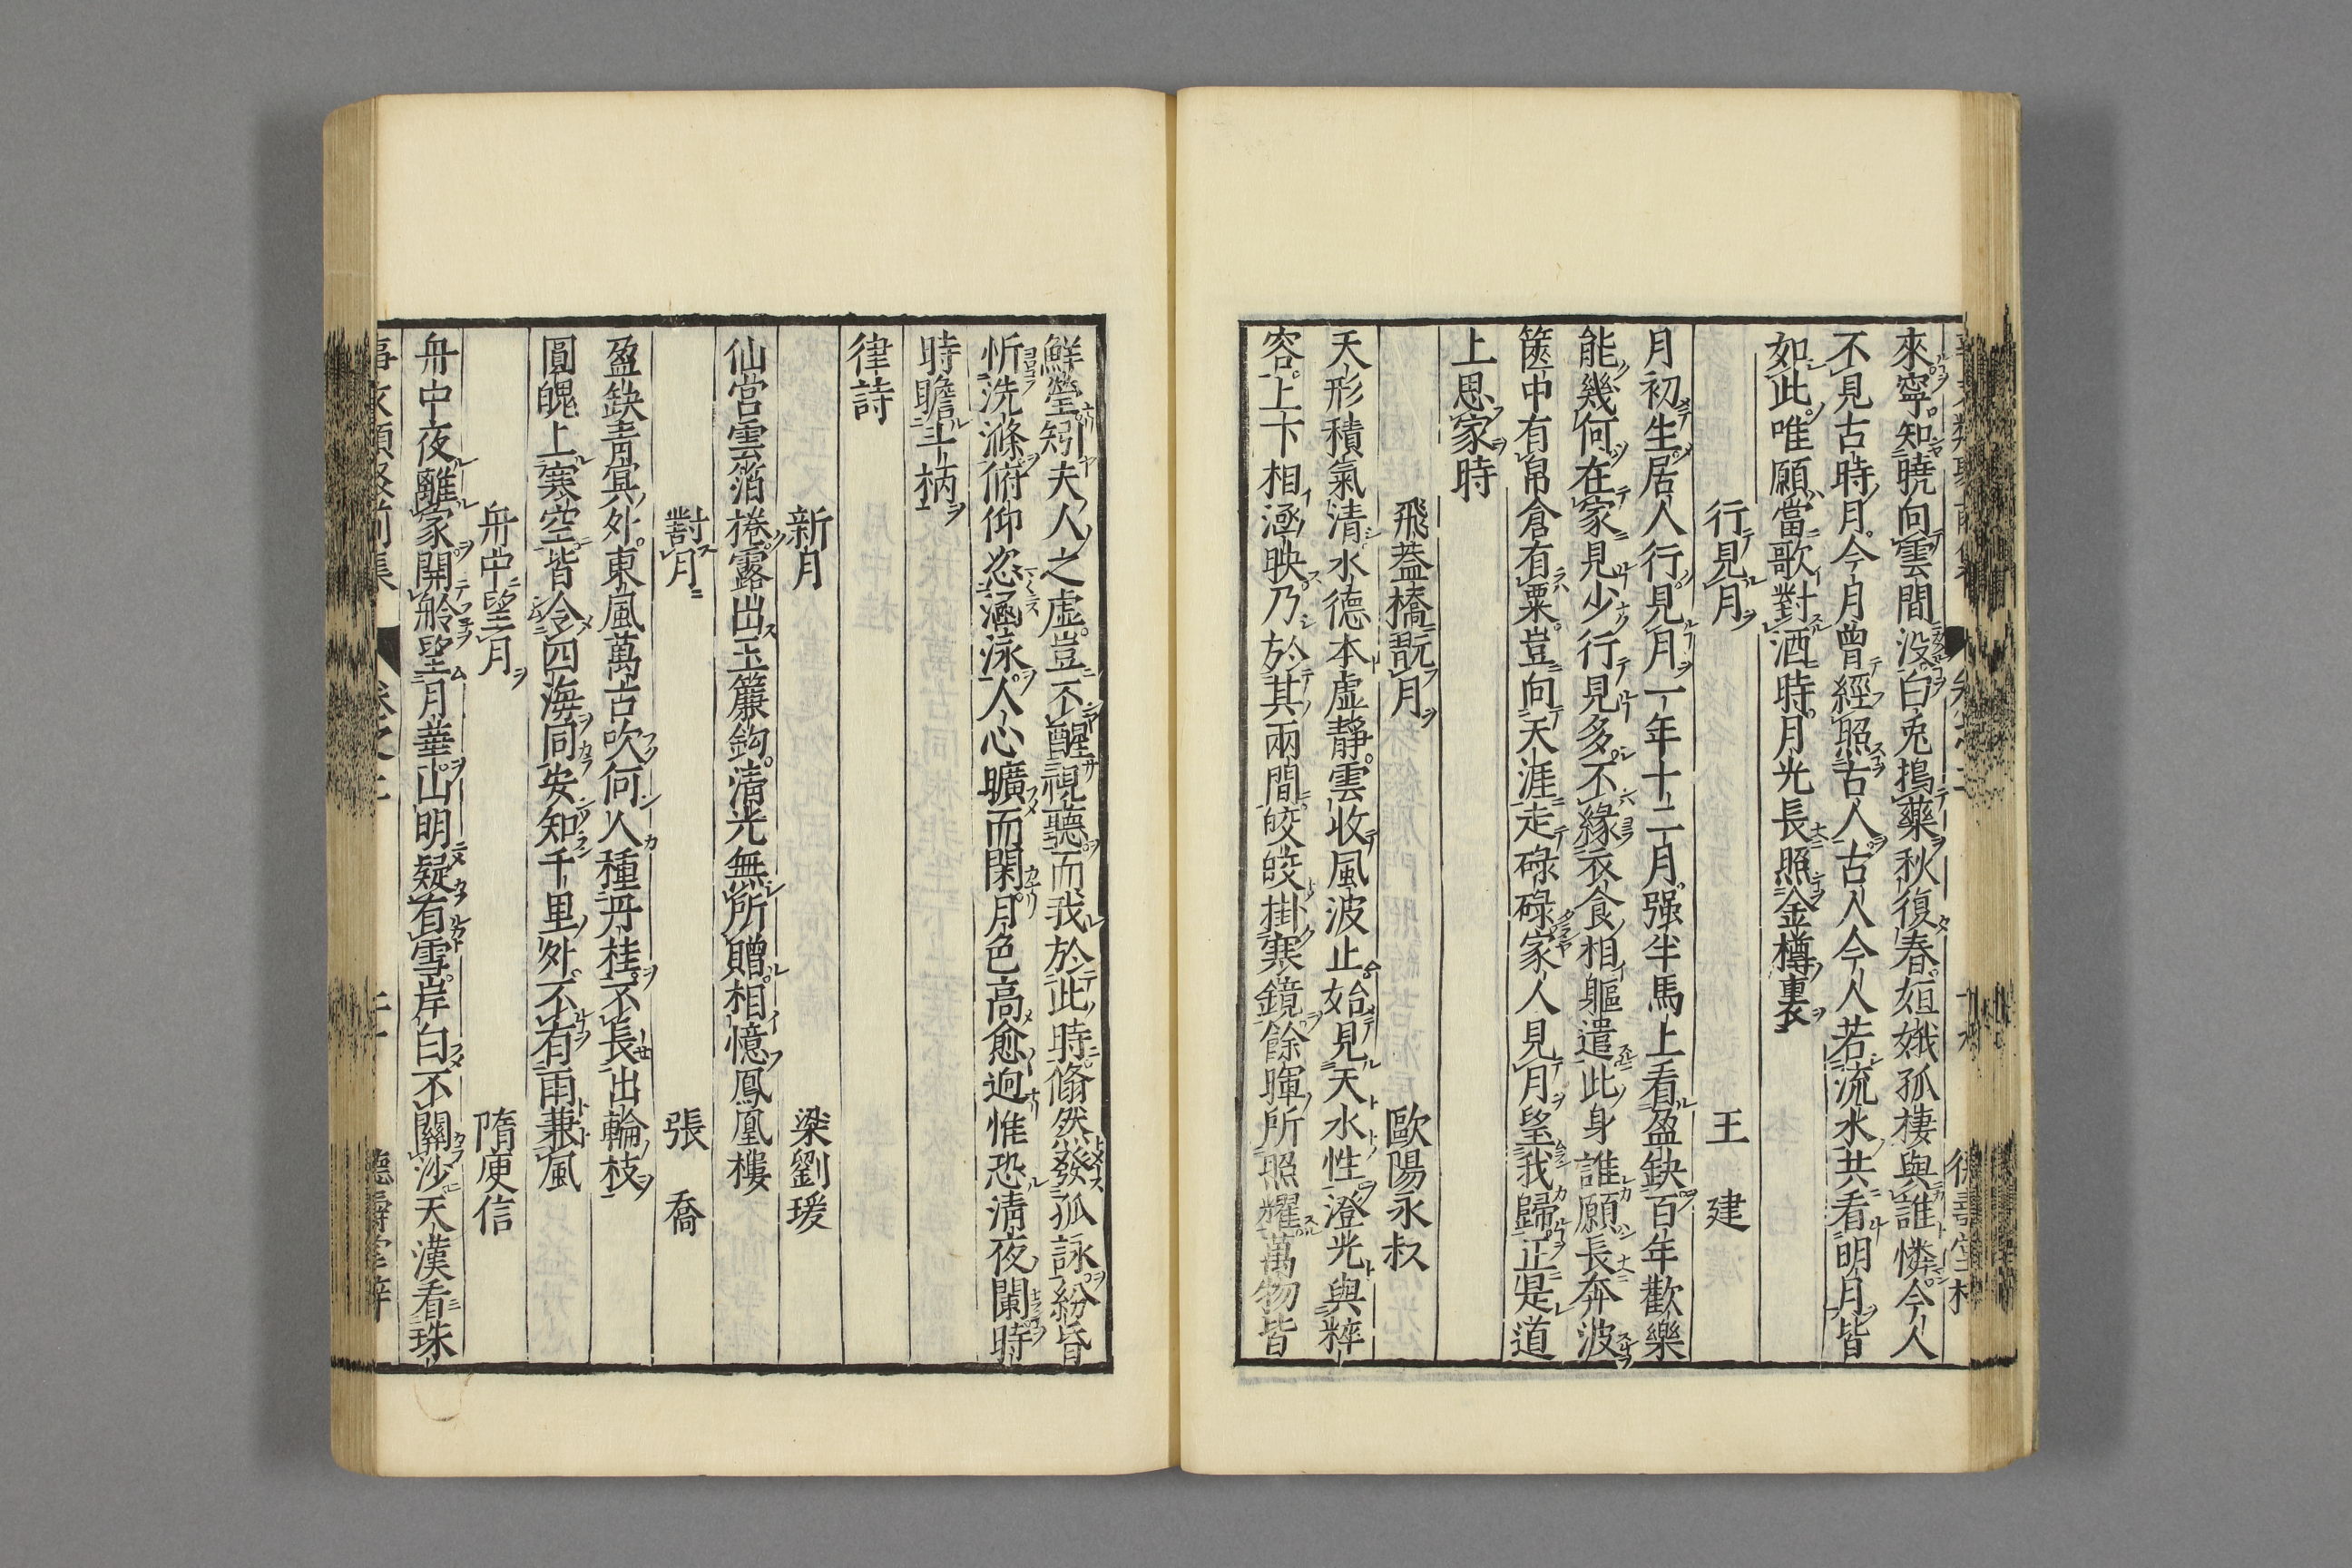 來寧知曉向雲間没白兎搗藥秋復春姮娥孤棲與誰憐今人
不見古時月今月曾經照古人古人今人若流水共看明月皆
如此唯願當歌對酒時月光長照金樽裏
行見月 王建
月初生居人行見月一年十二月强半馬上看盈缺百年歡樂
能幾何在家見少行見多不緣衣食相驅遣此身誰願長奔波
篋中有帛倉有粟豈向天涯走碌碌家人見月望我歸正是道
上思家時
飛蓋橋翫月 歐陽永叔
天形積氣清水德本虚靜雲收風波止始見天水性澄光與粹
容上下相涵映乃於其兩間皎皎掛寒鏡餘暉所照耀萬物皆
鮮瑩矧夫人之虚豈不醒視聽而我於此時翛然發孤詠紛昏
忻洗滌俯仰恣涵泳人心曠而閑月色高愈迥惟恐清夜闌時
時瞻斗柄
律詩
新月 梁劉瑗
仙宫雲箔捲露出玉簾鈎清光無所贈相憶鳳凰樓
對月 張喬
盈缺青冥外東風萬古吹何人種丹桂不長出輪枝
圓魄上寒空皆令四海同安知千里外不有雨兼風
舟中望月 隋庾信
舟中夜離家開舲望月華山明疑有雪岸白不關沙天漢看珠